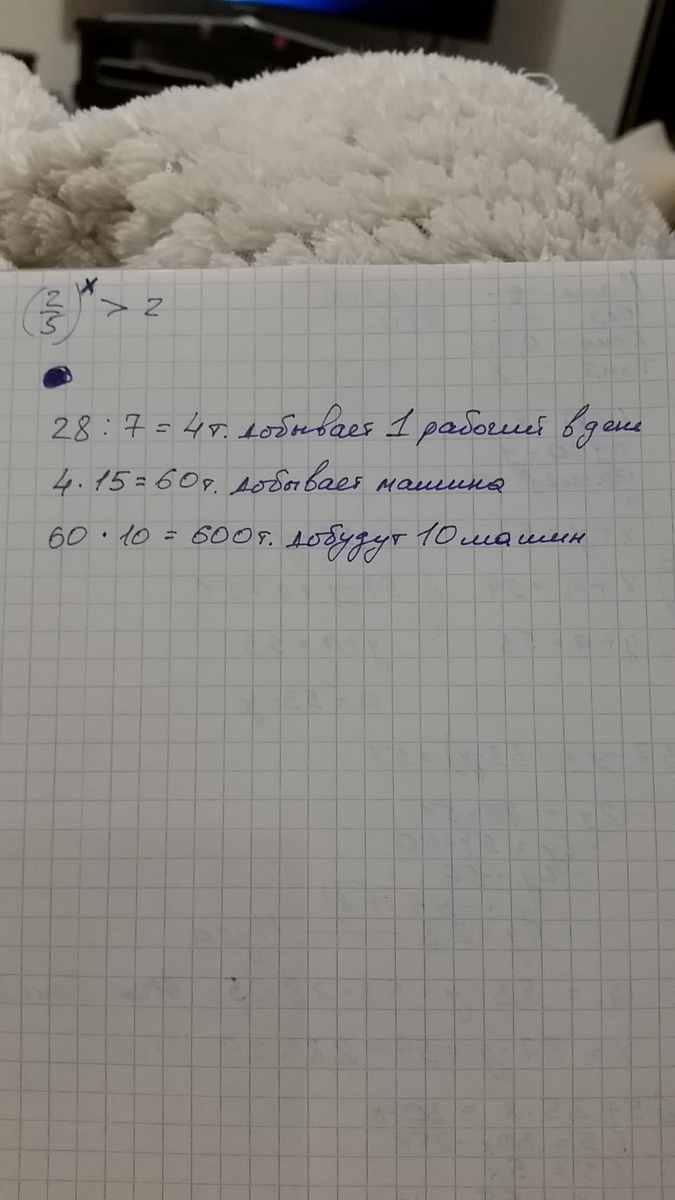 (2/5)^x > 2
28 : 7 = 4т. добывает 1 рабочий в день
4 · 15 = 60т. добывает машина
60 · 10 = 600т. добудут 10 машин